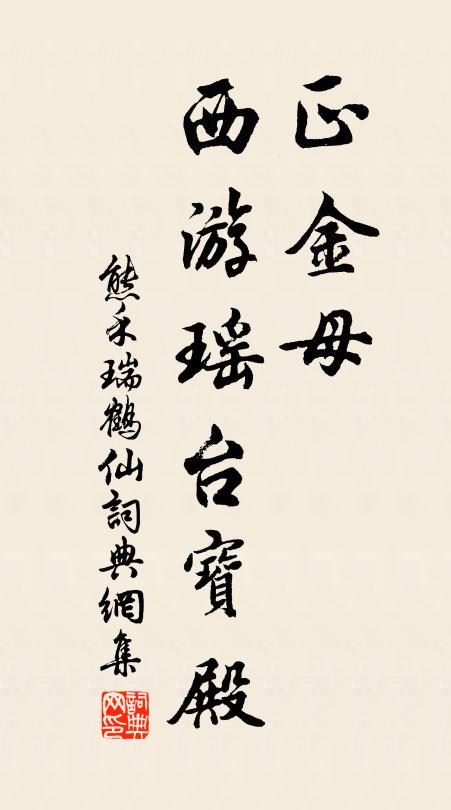 正金母
西游瑶台寶殿
熊禾瑞鶴仙詞典網集
詞典网印